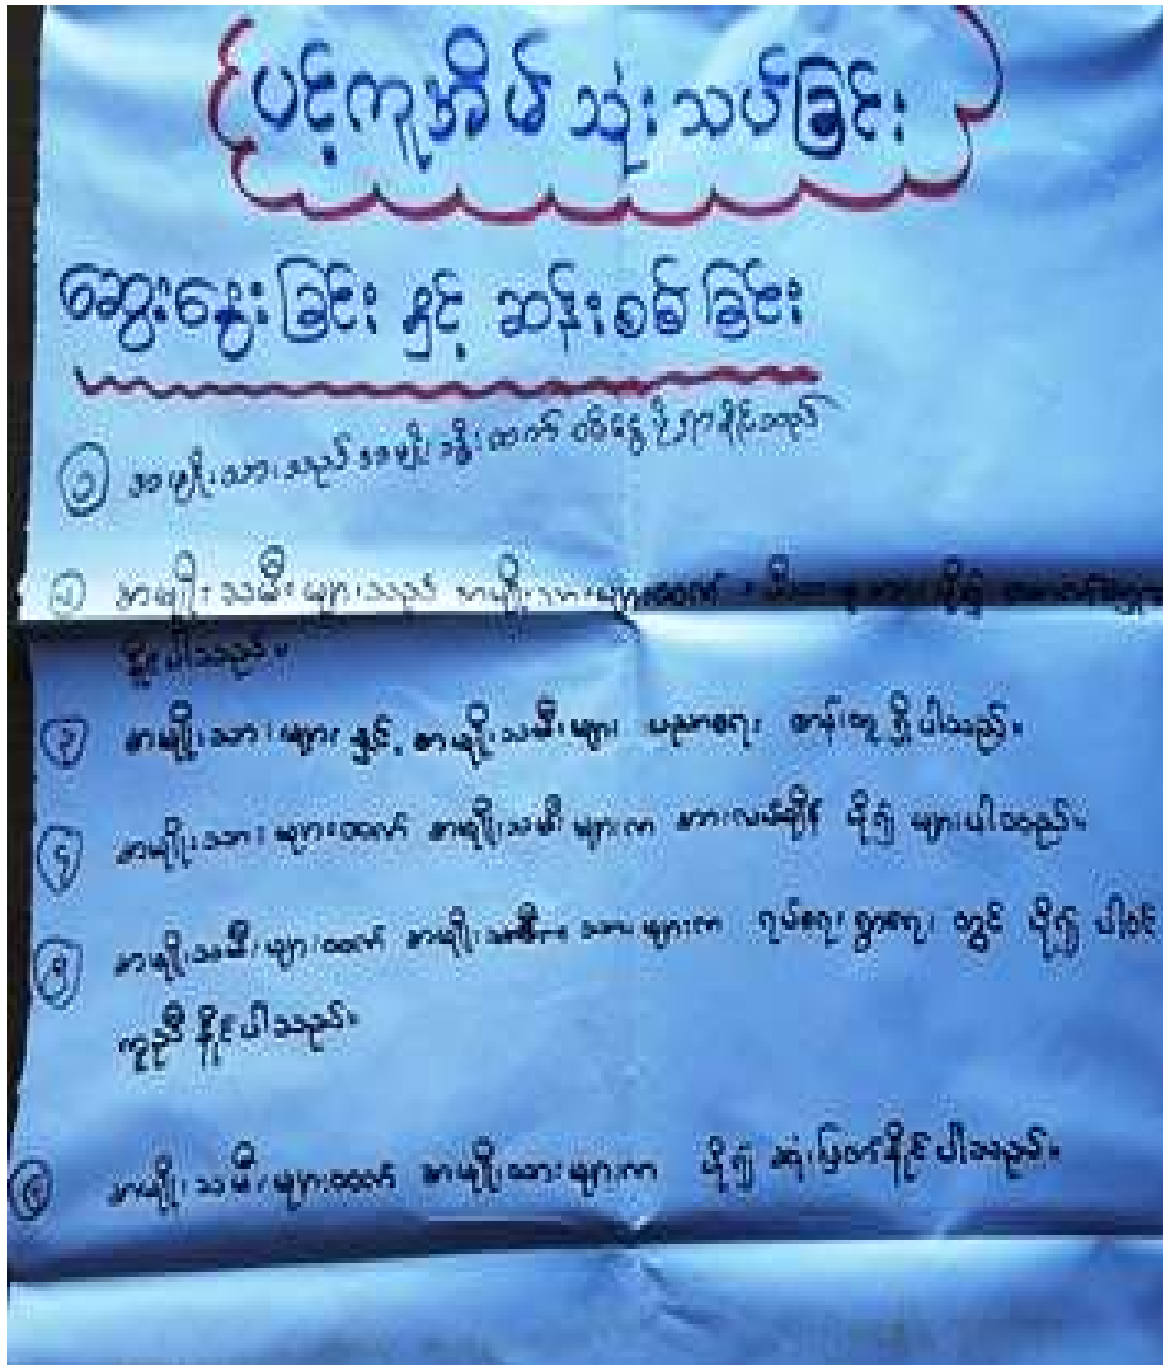 ပင့်ကူအိမ် သုံးသပ်ခြင်း
ဆွေးနွေးခြင်း နှင့် ဆန်းစစ်ခြင်း
၁ အမျိုးသားသည် အမျိုးသမီးထက် ဝင်ငွေ ပိုရှာနိုင်သည်
၂ အမျိုးသမီးများသည် အမျိုးသားများထက်
နိုင်ပါသည်။
၃ အမျိုးသားများ နှင့် အမျိုးသမီးများ ပညာရေး တန်းတူ ရှိပါသည်။
၄ အမျိုးသားများထက် အမျိုးသမီးများက အားလပ်ချိန် ပို၍ များပါသည်။
၅ အမျိုးသမီးများထက် အမျိုးသားများက ရပ်ရေးရွာရေး တွင် ပို၍ ပါဝင်
ကူညီ နိုင်ပါသည်။
၆ အမျိုးသမီးများထက် အမျိုးသားများက ပို၍ ဆုံးဖြတ်နိုင်ပါသည်။